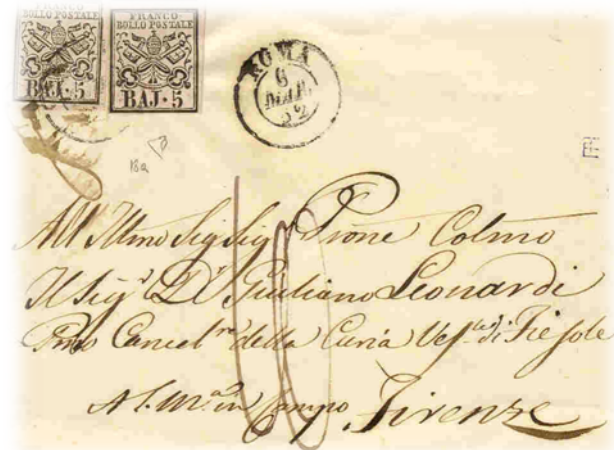 FRANCO
BOLLO POSTALE
BAJ·5
FRANCO
BOLLO POSTALE
BAJ·5
ROMA
6
MAR
52
18a
All Illmo Sig Sig Prone Colmo
Il Sigr Dr Giuliano Leonardi
Pmo Cancelre della Curia Vesle di Fiesole
A S. Ma in Campo Firenze